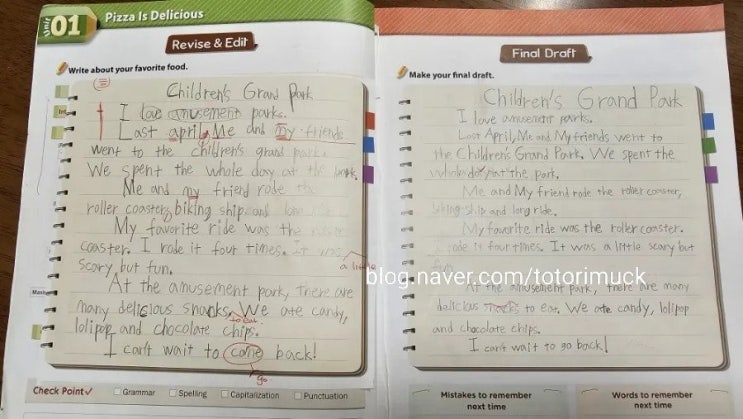 Unit 01 Pizza Is Delicious
Revise & Edit
Write about your favorite food.
Children's Grand Park
I love amusement parks.
Last april, Me and my friends
went to the children's grand park.
We spent the whole day at the park.
Me and my friend rode the
roller coaster, biking ship and
My favorite ride was the
coaster. I rode it four times. It was
a little
scary but fun.
At the amusement park, there are
many delicious snacks. We ate candy,
to eat.
lolipop and chocolate chips.
I can't wait to come back!
go
Check Point
Grammar
Spelling
Capitalization
Punctuation
Final Draft
Make your final draft.
Children's Grand Park
I love amusement parks.
Last April, Me and My friends went to
the Children's Grand Park. We spent the
whole day at the park.
Me and My friend rode the roller coaster,
biking ship and long ride.
My favorite ride was the roller coaster.
I rode it four times. It was a little scary but
fun.
At the amusement park, there are many
delicious snacks to eat. We ate candy, lolipop
and chocolate chips.
I can't wait to go back!
Mistakes to remember
next time
Words to remember
next time
blog.naver.com/totorimuck